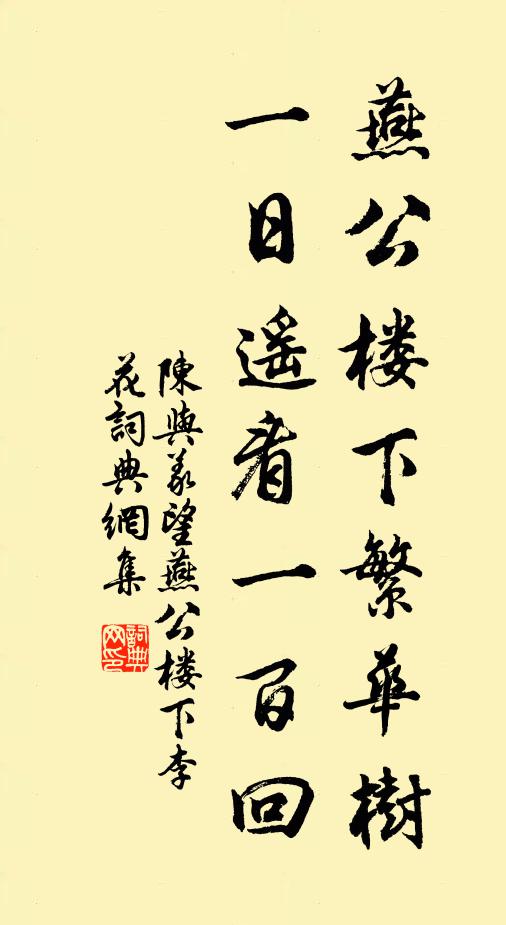 燕公楼下繁華樹
一日遥看一百回
陳與義望燕公楼下李
花詞典網集
詞典网印